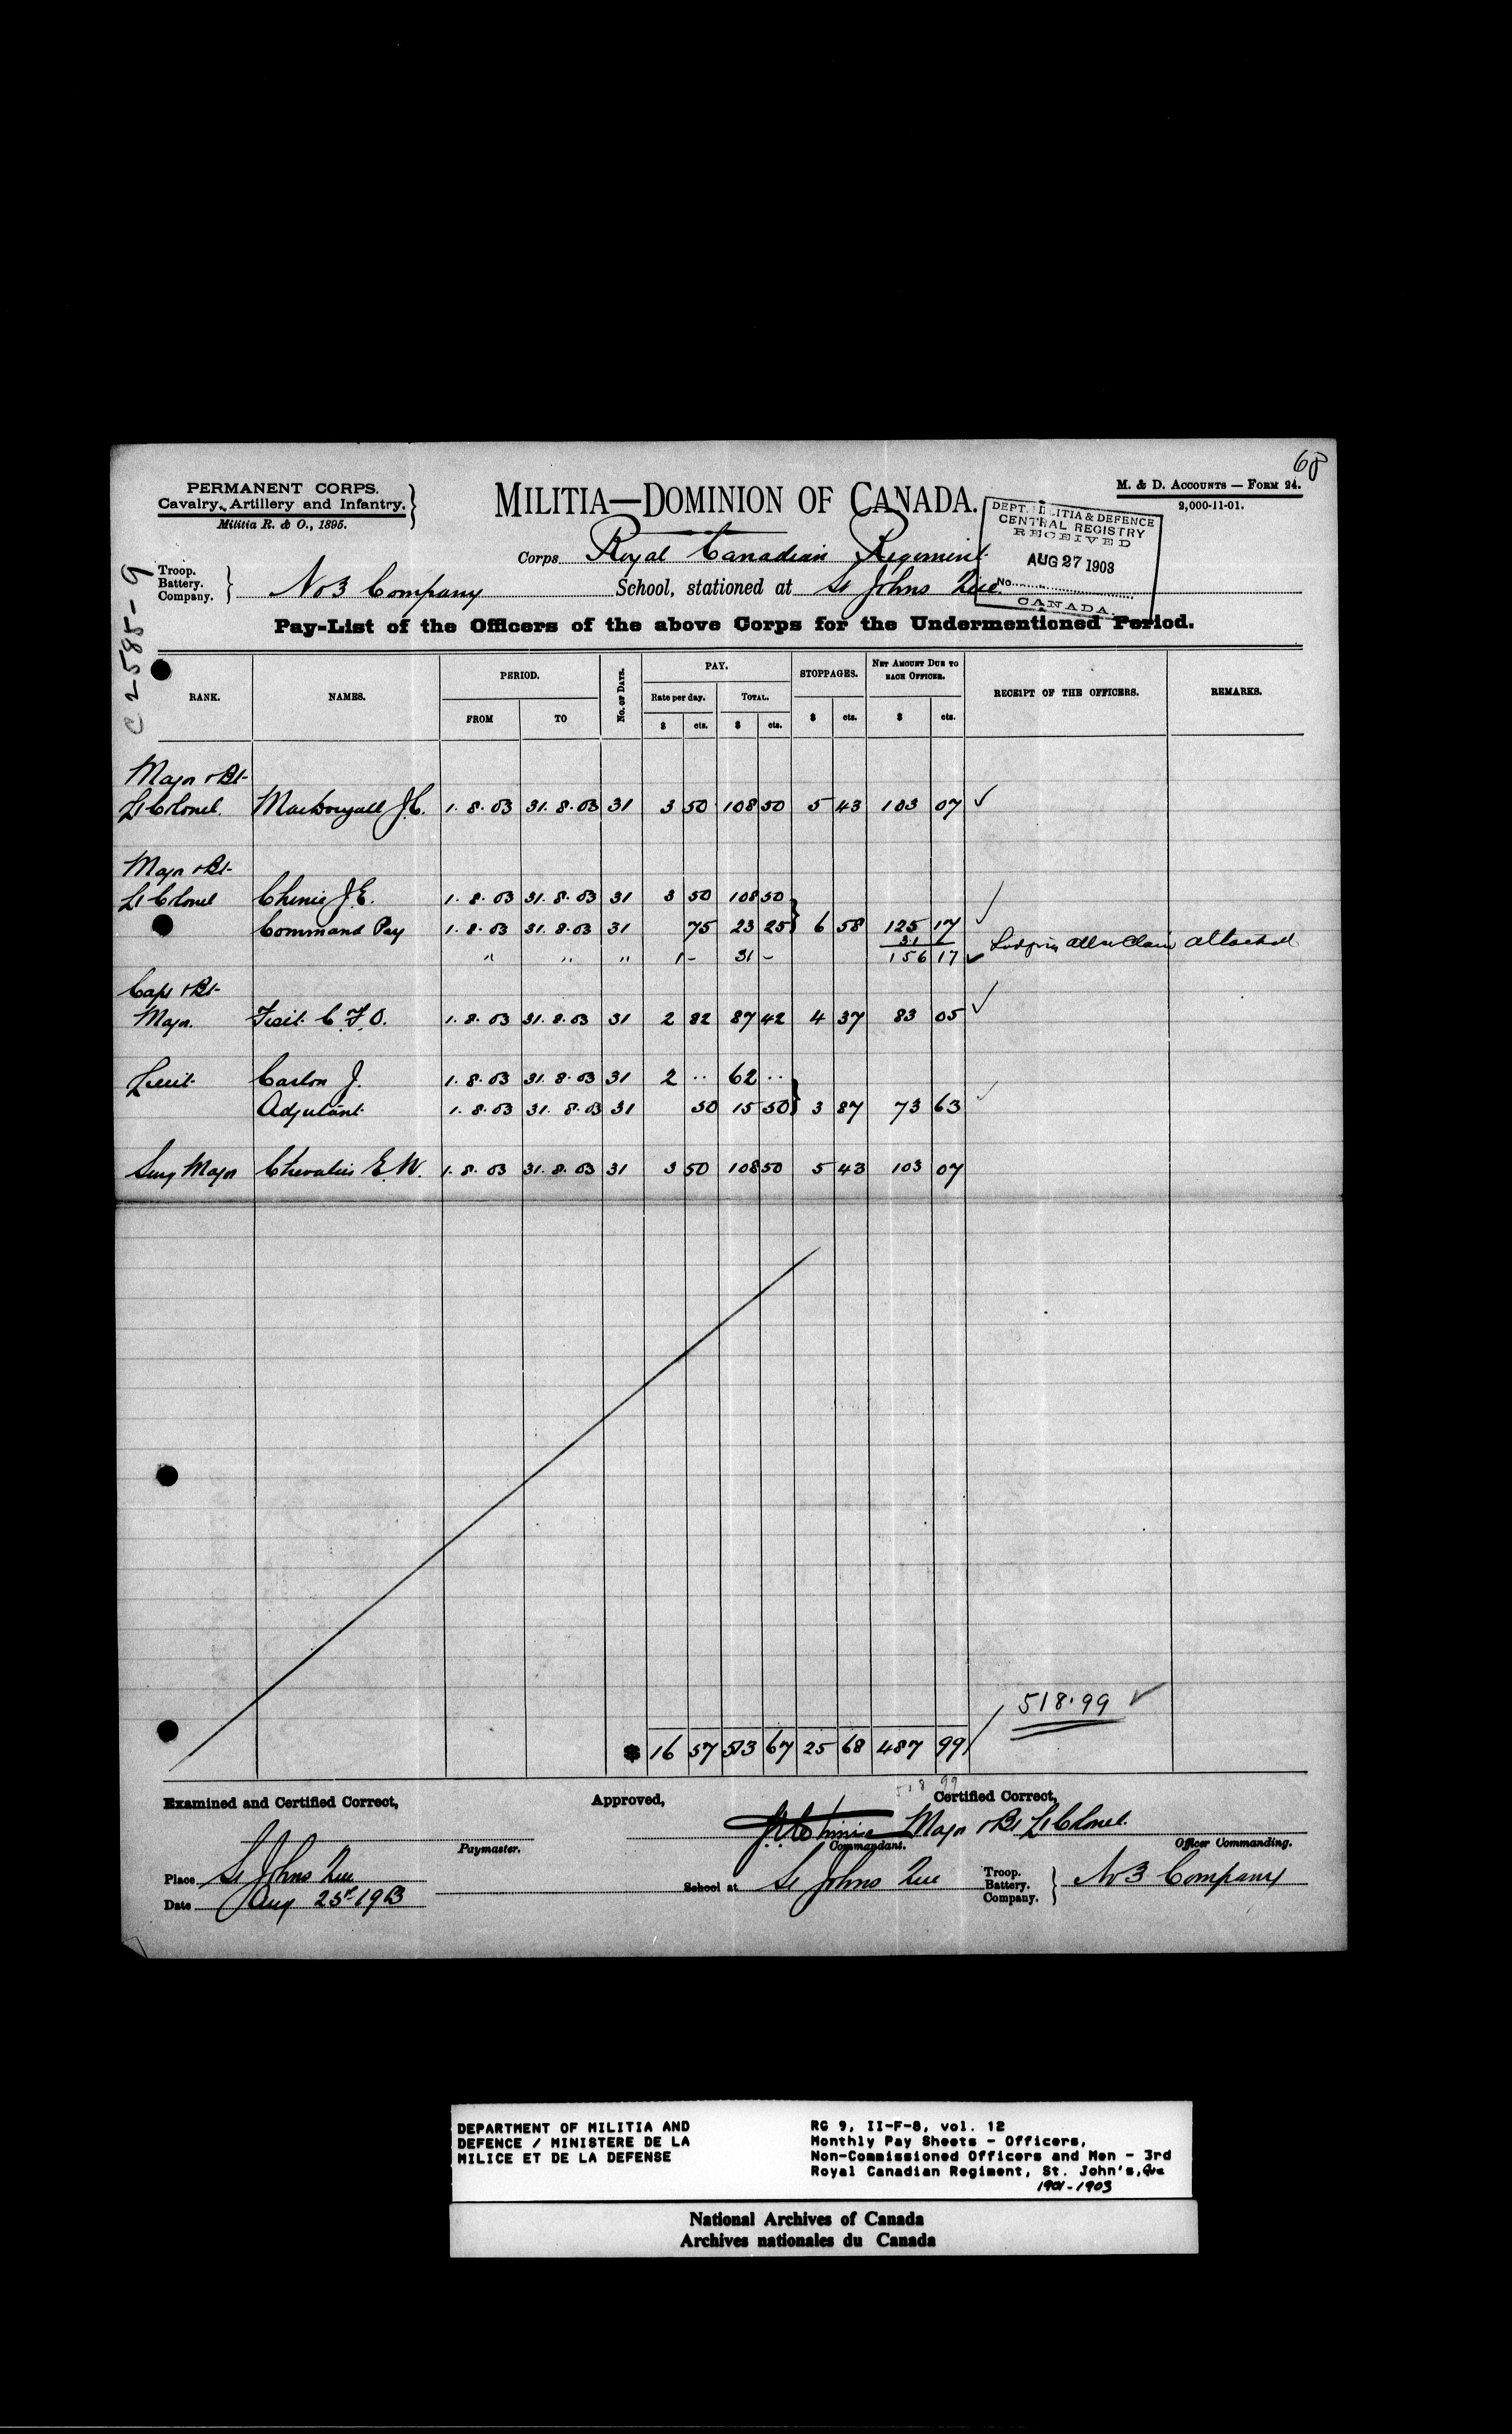 68
PERMANENT CORPS.
Cavalry, Artillery and Infantry.
Militia R. & O., 1895.
MILITIA—DOMINION OF CANADA.
M. & D. ACCOUNTS — FORM 24.
2,000-11-01.
DEPT. MILITIA & DEFENCE
CENTRAL REGISTRY
RECEIVED
AUG 27 1903
No.
CANADA.
Corps Royal Canadian Regiment
Troop.
Battery.
Company.
No 3 Company School, stationed at St Johns Que.
C 2585-9
Pay-List of the Officers of the above Corps for the Undermentioned Period.
RANK. NAMES. PERIOD. No. of Days. PAY. STOPPAGES. NET AMOUNT DUE TO EACH OFFICER. RECEIPT OF THE OFFICERS. REMARKS.
FROM TO Rate per day. TOTAL.
$ cts. $ cts. $ cts. $ cts.
Major & Bt-
Lt Colonel. MacDougall J.C. 1. 8. 03 31. 8. 03 31 3 50 108 50 5 43 103 07 ✓
Major & Bt-
Lt Colonel Chinic J.E. 1. 8. 03 31. 8. 03 31 3 50 108 50
Command Pay 1. 8. 03 31. 8. 03 31 75 23 25 } 6 58 125 17 ✓
31
" " " 1 - 31 - 156 17 ✓ Lodging Claim attached
Capt & Bt-
Major. C. F. O. 1. 8. 03 31. 8. 03 31 2 82 87 42 4 37 83 05 ✓
Lieut. J. 1. 8. 03 31. 8. 03 31 2 .. 62 ..
Adjutant 1. 8. 03 31. 8. 03 31 50 15 50 } 3 87 73 63 ✓
Surg Major Chevalier E. W. 1. 8. 03 31. 8. 03 31 3 50 108 50 5 43 103 07
518.99 ✓
$ 16 57 513 67 25 68 487 99
518 99
Examined and Certified Correct, Approved, Certified Correct,
J.E. Chinic Major & Bt Lt Colonel.
Paymaster. Commandant. Officer Commanding.
Place St Johns Que School at St Johns Que Troop.
Battery.
Company.
No 3 Company
Date Aug 25th 1903
DEPARTMENT OF MILITIA AND
DEFENCE / MINISTERE DE LA
MILICE ET DE LA DEFENSE
RG 9, II-F-8, vol. 12
Monthly Pay Sheets - Officers,
Non-Commissioned Officers and Men - 3rd
Royal Canadian Regiment, St. John's, Que
1901-1903
National Archives of Canada
Archives nationales du Canada